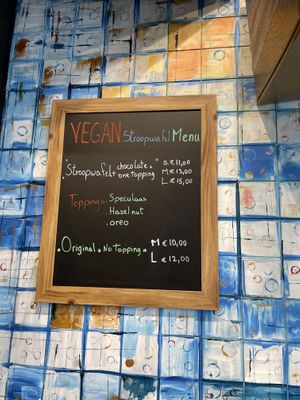 VEGAN Stroopwafel Menu
"Stroopwafel + chocolate + one topping" S €11,00
M €13,00
L €15,00
Toppings: . Speculaas
. Hazelnut
. oreo
• Original & No Topping • M €10,00
L €12,00